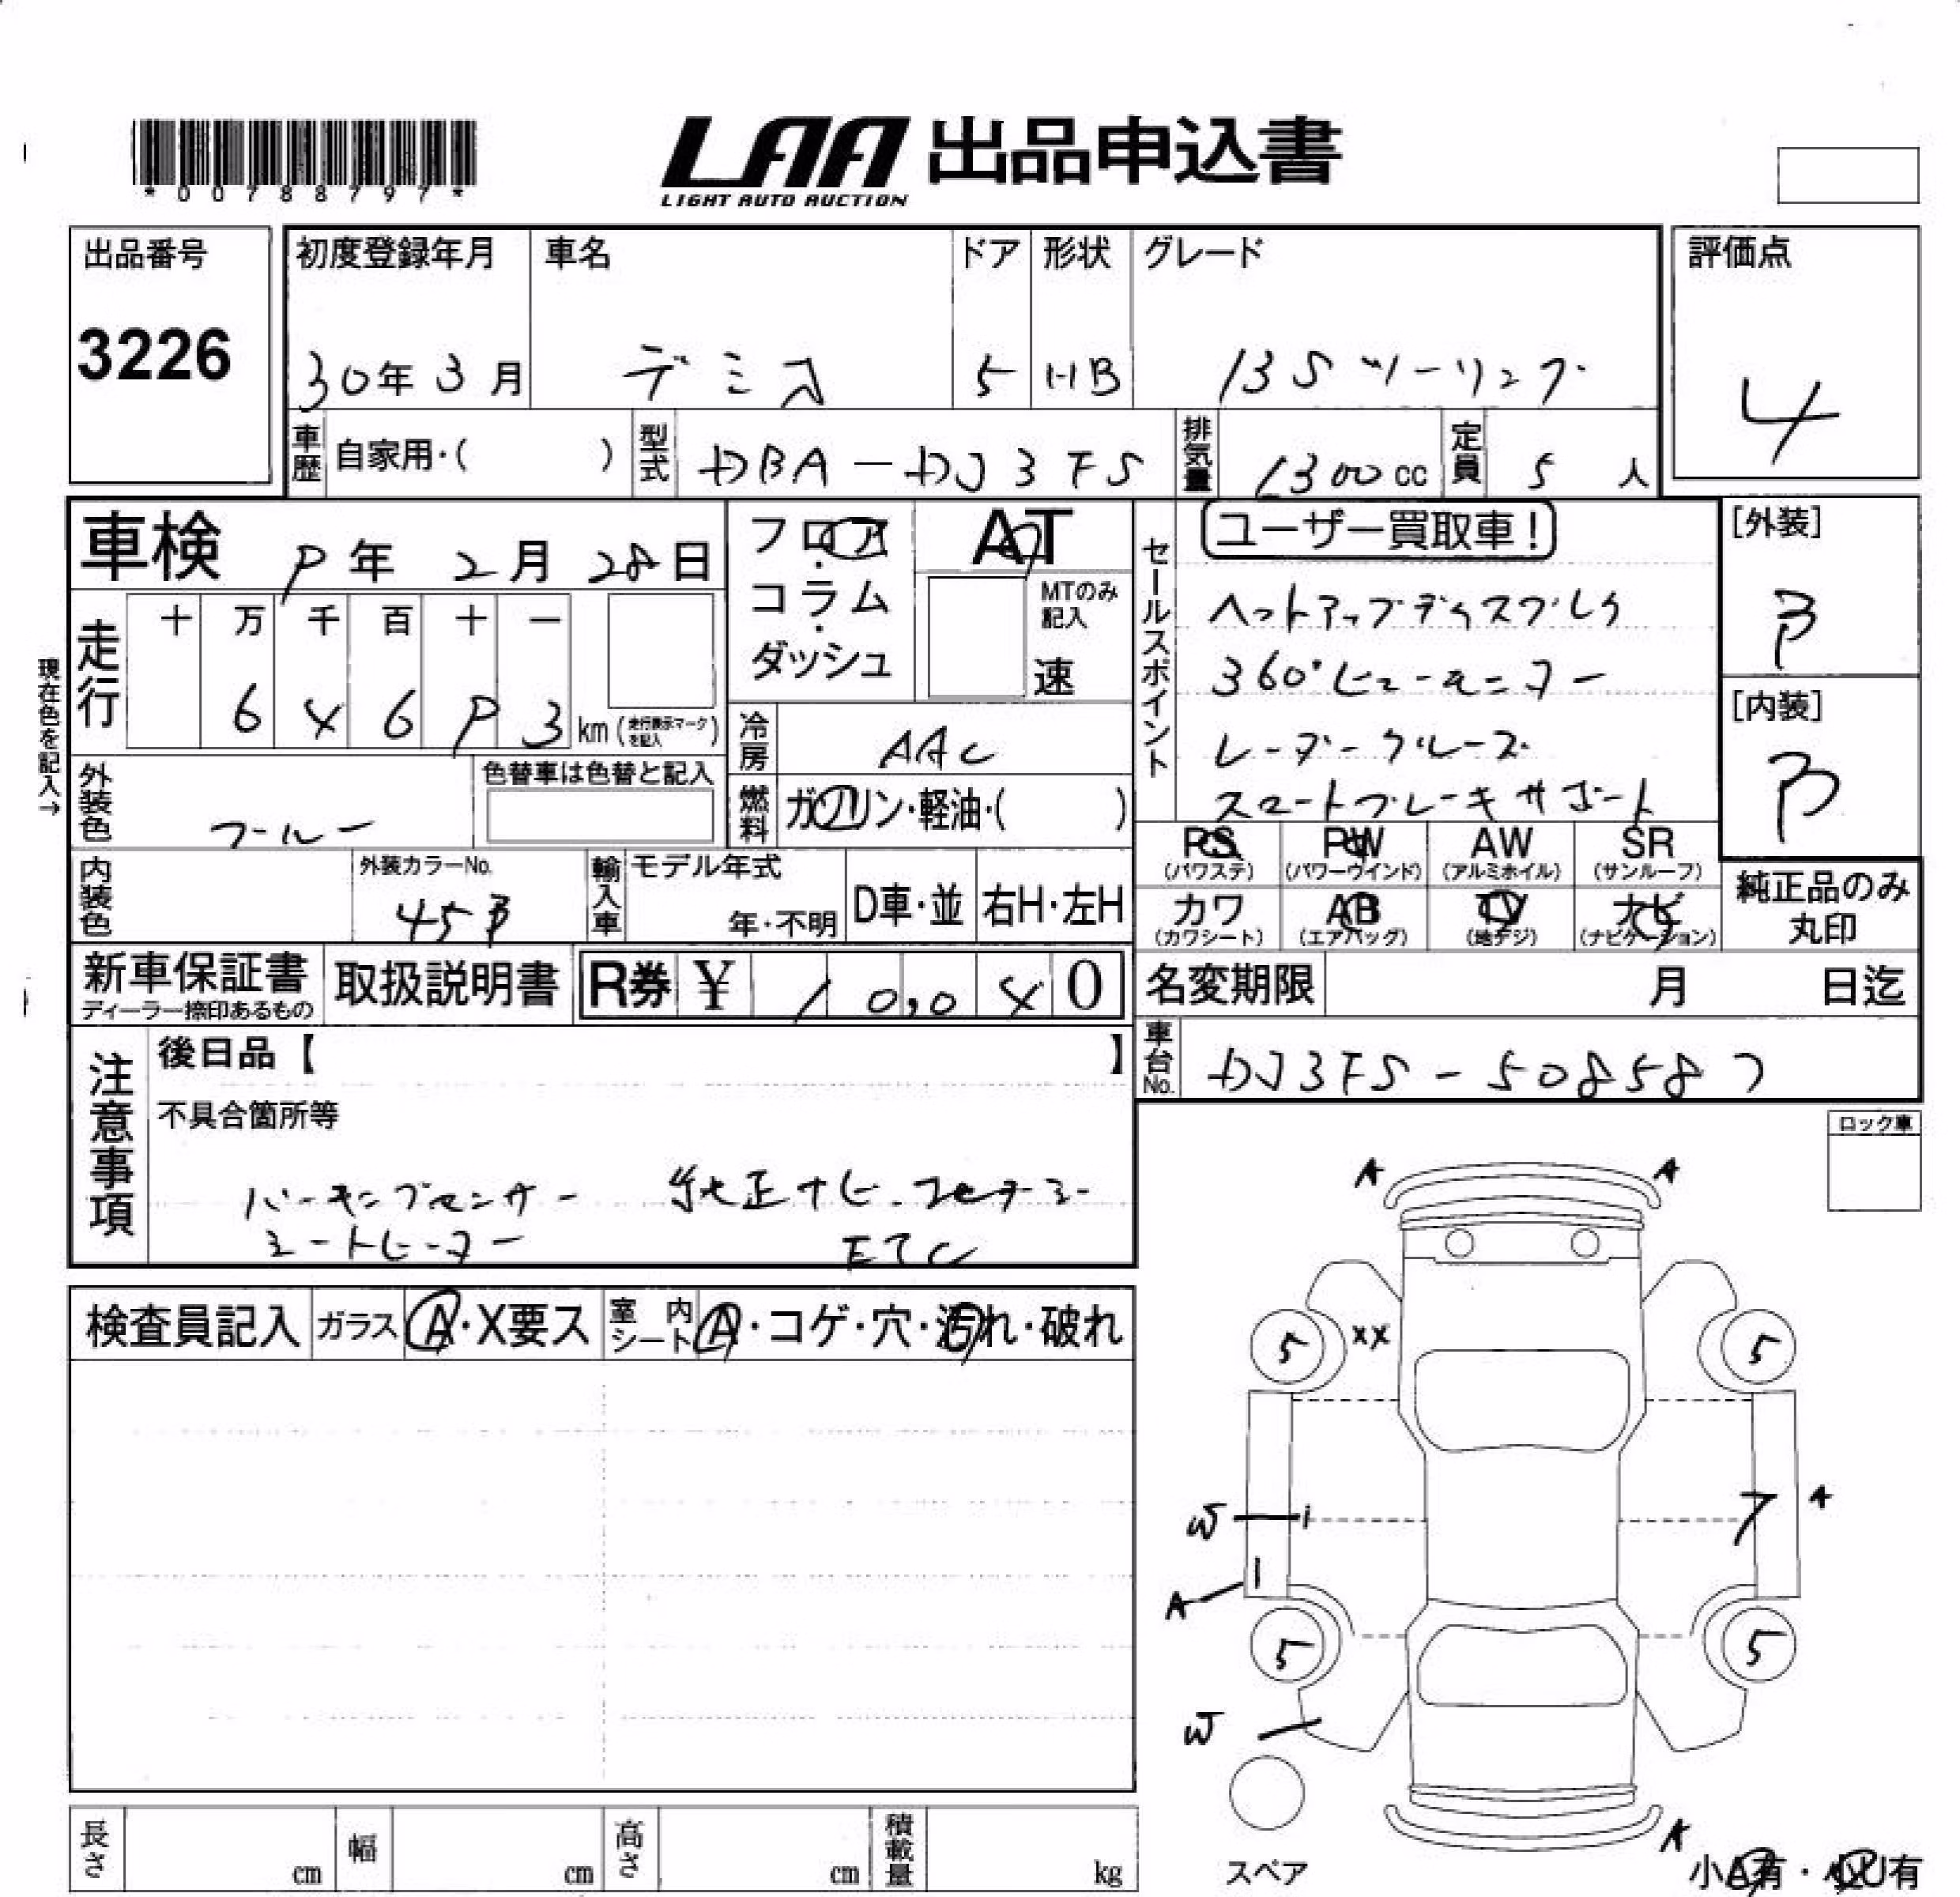 *00788797*
LAA 出品申込書
LIGHT AUTO AUCTION
出品番号
3226
初度登録年月
30年3月
車名
デミオ
ドア
5
形状
HB
グレード
13S ツーリング
評価点
4
車歴 自家用・( )
型式 DBA-DJ3FS
排気量 1300cc
定員 5人
車検 9年2月28日
フロア・コラム・ダッシュ
AT
MTのみ記入
速
走行
十 万 千 百 十 一
6 4 6 9 3 km (走行表示マークを記入)
現在色を記入→
外装色 ブルー
色替車は色替と記入
冷房 AAC
燃料 ガソリン・軽油・( )
内装色
外装カラーNo.
45B
輸入車 モデル年式
年・不明
D車・並 右H・左H
新車保証書
ディーラー捺印あるもの
取扱説明書
R券 ¥ 10,040
セールスポイント
ユーザー買取車!
ヘットアップディスプレイ
360°ビューモニター
レーダークルーズ
スマートブレーキサポート
PS (パワステ)
PW (パワーウインド)
AW (アルミホイル)
SR (サンルーフ)
カワ (カワシート)
AB (エアバッグ)
TV (地デジ)
ナビ (ナビゲーション)
[外装]
B
[内装]
B
純正品のみ
丸印
名変期限 月 日迄
車台No. DJ3FS-508587
注意事項
後日品【 】
不具合箇所等
パーキングセンサー 純正ナビ
シートヒーター ETC
検査員記入
ガラス A・X要ス
室内シート A・コゲ・穴・汚れ・破れ
ロック車
A A
5 XX 5
W A
A
5 5
W
A
スペア
小A有・小U有
長さ cm
幅 cm
高さ cm
積載量 kg